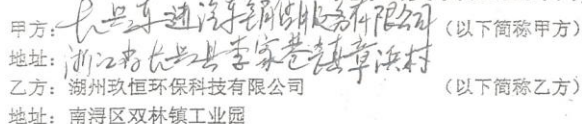 甲方:长兴车进汽车销售服务有限公司(以下简称甲方)
地址:浙江省长兴县李家巷镇章浜村
乙方:湖州玖恒环保科技有限公司(以下简称乙方)
地址:南浔区双林镇工业园